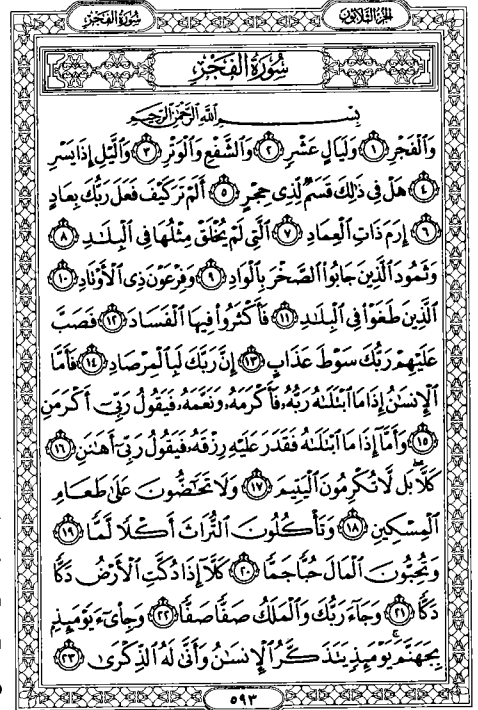 سُورَةُ الفَجْرِ الجُزْءُ الثَّلَاثُونَ
سُورَةُ الْفَجْرِ
بِسْمِ اللَّهِ الرَّحْمَٰنِ الرَّحِيمِ
وَالْفَجْرِ ١ وَلَيَالٍ عَشْرٍ ٢ وَالشَّفْعِ وَالْوَتْرِ ٣ وَاللَّيْلِ إِذَا يَسْرِ
٤ هَلْ فِي ذَٰلِكَ قَسَمٌ لِّذِي حِجْرٍ ٥ أَلَمْ تَرَ كَيْفَ فَعَلَ رَبُّكَ بِعَادٍ
٦ إِرَمَ ذَاتِ الْعِمَادِ ٧ الَّتِي لَمْ يُخْلَقْ مِثْلُهَا فِي الْبِلَٰدِ ٨
وَثَمُودَ الَّذِينَ جَابُوا الصَّخْرَ بِالْوَادِ ٩ وَفِرْعَوْنَ ذِي الْأَوْتَادِ ١٠
الَّذِينَ طَغَوْا فِي الْبِلَٰدِ ١١ فَأَكْثَرُوا فِيهَا الْفَسَادَ ١٢ فَصَبَّ
عَلَيْهِمْ رَبُّكَ سَوْطَ عَذَابٍ ١٣ إِنَّ رَبَّكَ لَبِالْمِرْصَادِ ١٤ فَأَمَّا
الْإِنسَٰنُ إِذَا مَا ابْتَلَىٰهُ رَبُّهُۥ فَأَكْرَمَهُۥ وَنَعَّمَهُۥ فَيَقُولُ رَبِّي أَكْرَمَنِ
١٥ وَأَمَّا إِذَا مَا ابْتَلَىٰهُ فَقَدَرَ عَلَيْهِ رِزْقَهُۥ فَيَقُولُ رَبِّي أَهَٰنَنِ ١٦
كَلَّا بَل لَّا تُكْرِمُونَ الْيَتِيمَ ١٧ وَلَا تَحَٰضُّونَ عَلَىٰ طَعَامِ
الْمِسْكِينِ ١٨ وَتَأْكُلُونَ التُّرَاثَ أَكْلًا لَّمًّا ١٩
وَتُحِبُّونَ الْمَالَ حُبًّا جَمًّا ٢٠ كَلَّا إِذَا دُكَّتِ الْأَرْضُ دَكًّا
دَكًّا ٢١ وَجَاءَ رَبُّكَ وَالْمَلَكُ صَفًّا صَفًّا ٢٢ وَجِايءَ يَوْمَئِذٍ
بِجَهَنَّمَ يَوْمَئِذٍ يَتَذَكَّرُ الْإِنسَٰنُ وَأَنَّىٰ لَهُ الذِّكْرَىٰ ٢٣
٥٩٣